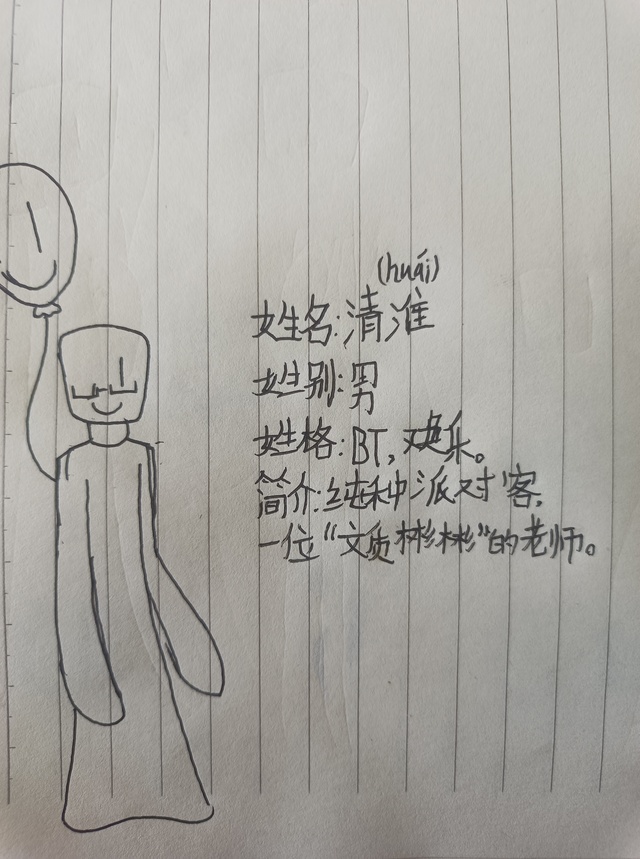 (huái)
姓名:清淮
姓别:男
姓格:BT,欢乐。
简介:纯种派对客,
一位“文质彬彬”的老师。